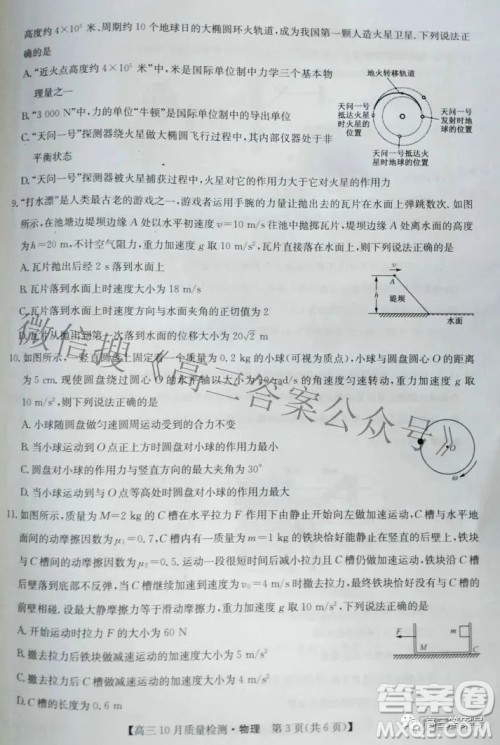 高度约 4×10⁵ 米、周期约 10 个地球日的大椭圆环火轨道，成为我国第一颗人造火星卫星. 下列说法正
确的是
A. “近火点高度约 4×10⁵ 米”中，米是国际单位制中力学三个基本
物理量之一
B. “3 000 N”中，力的单位“牛顿”是国际单位制中的导出单位
C. “天问一号”探测器绕火星做大椭圆飞行过程中，其内部仪器处于
平衡状态
D. “天问一号”探测器被火星捕获过程中，火星对它的作用力大于它对火星的作用力
地火转移轨道
天问一号
抵达火星
时火星的
位置
天问一号
发射时地
球的位置
天问一号抵达火星
时地球的位置
9. “打水漂”是人类最古老的游戏之一，游戏者运用手腕的力量让抛出去的石头在水面上弹跳数次. 如图
所示，在池塘边堤坝坝堤 A 处以水平初速度 v=10 m/s 往池中抛掷瓦片，坝堤距离水面的高度
为 h=20 m，不计空气阻力，重力加速度 g 取 10 m/s²，瓦片直接落在水面上，下列说法正确的是
A. 瓦片抛出后经 2 s 落到水面上
B. 瓦片落到水面上时速度大小为 18 m/s
C. 瓦片落到水面上时的速度大小为
D. 瓦片从抛出到第一次落到水面上位移大小为 20√2 m
v
A
h
堤坝
水面
10. 如图所示，一竖直圆盘上固定着一个质量为 0.2 kg 的小球(可视为质点)，小球与圆盘圆心 O 的距离
为 5 cm. 现使圆盘绕过圆心 O 的水平轴以大小为 10 rad/s 的角速度匀速转动，重力加速度 g 取
10 m/s²，则
A. 小球随圆盘做匀速圆周运动的周期为
B. 当小球运动到 O 点正上方时圆盘对小球的作用力大小为
C. 圆盘对小球的作用力与竖直方向的最大夹角为 30°
D. 当小球运动到与 O 点等高时圆盘对小球的作用力大小为
O
ω
11. 如图所示，质量为 M=2 kg 的 C 槽在水平拉力 F 作用下由静止开始向左做加速运动，C 槽与水平地
面间的动摩擦因数为 μ₁=0.7，C 槽内有一质量为 m=1 kg 的铁块恰好能静止在后壁上，铁块
与 C 槽间的动摩擦因数为 μ₂=0.5. 运动一段很短时间后，撤去拉力，C 槽做减速运动，铁块沿 C 槽
后壁落到底部不反弹，当 C 槽继续加速到速度为 v₀=4 m/s 时撤去拉力，最终铁块恰好没有与 C 槽的
前壁相碰. 设最大静摩擦力等于滑动摩擦力，重力加速度 g 取 10 m/s²，则
A. 开始运动时拉力 F 的大小为 60 N
B. 撤去拉力后铁块做减速运动的加速度大小为 5 m/s²
C. 撤去拉力后 C 槽做减速运动的加速度大小为
D. C 槽的长度为 0.6 m
F
M
m
C
【高三 10 月质量检测·物理 第 3 页(共 6 页)】
微信搜《高三答案公众号》
答案圈
MXQE.COM